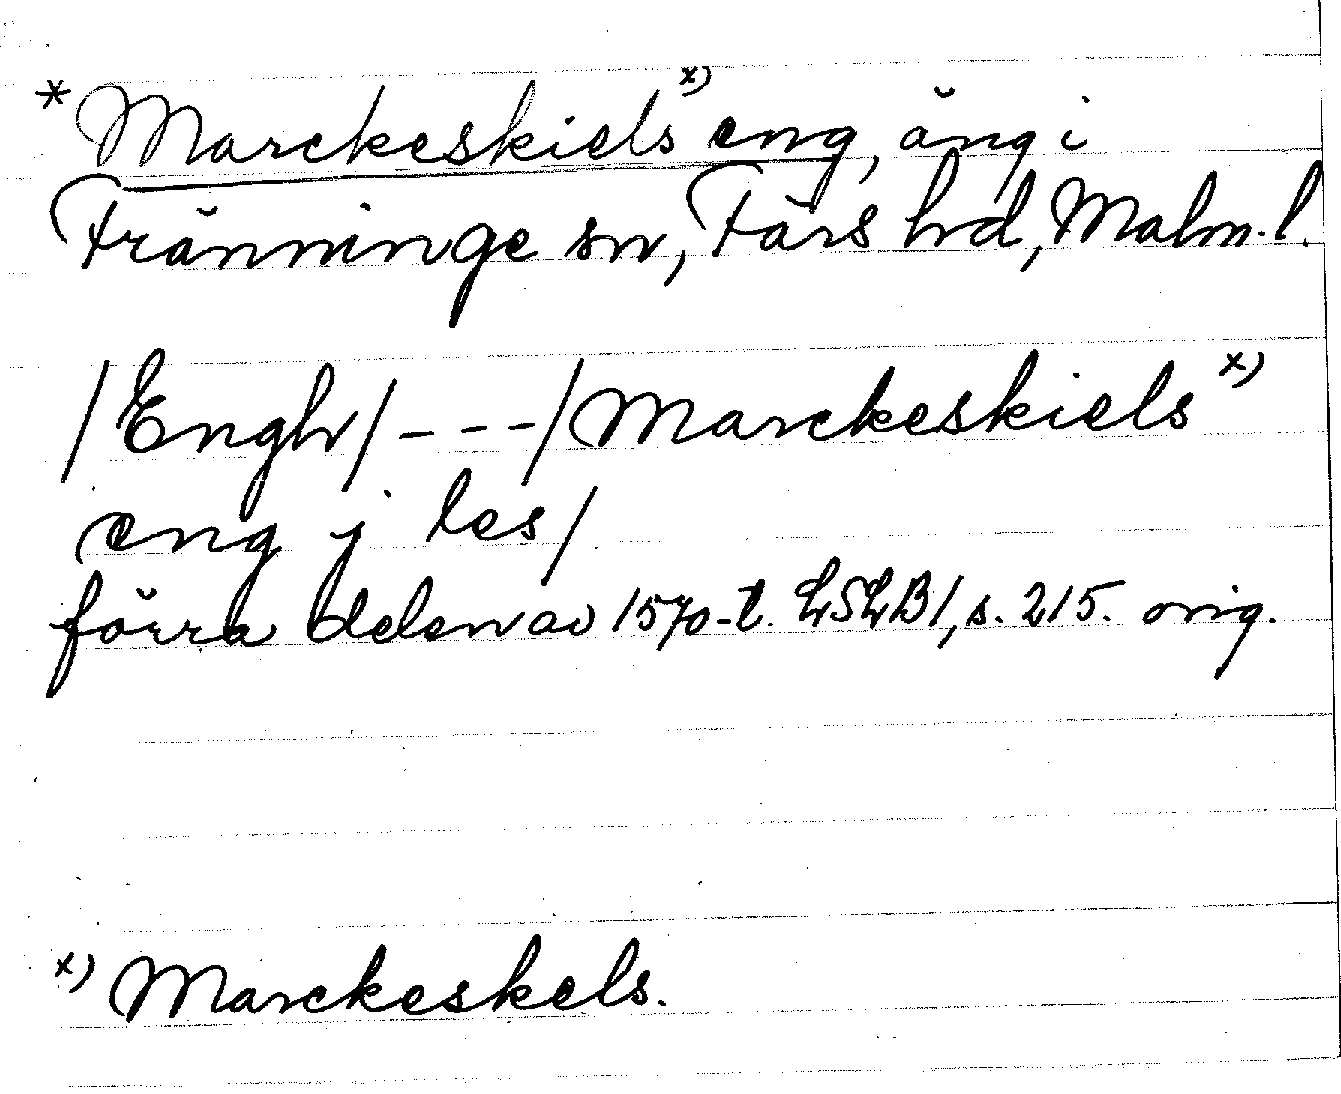 * Marckeskiels x) eng, äng i
Tränninge sn, Färs hd, Malm. l.
/Engh/ - - - /Marckeskiels x)
eng j les/
förra delen av 1570-t. LSLB1, s. 215. orig.
x) Marckeskels.